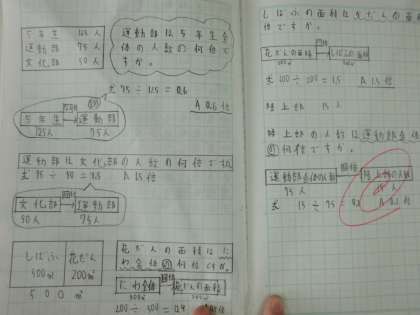 5年生 125人
運動部 75人
文化部 50人
運動部は5年生全
体の人数の何倍で
すか。
式 75÷125=0.6
A 0.6倍
5年生 → 運動部
125人 75人
運動部は文化部の人数の何倍ですか
式 75÷50=1.5 A 1.5倍
文化部 → 運動部
50人 75人
しばふ 花だん
300m² 200m²
500m²
花だんの面積はに
わ全体の何倍ですか。
にわ全体 → 花だんの面積
200÷500=0.4
しばふの面積は花だんの面
積の何倍ですか。
花だんの面積 → しばふの面積
式 300÷200=1.5 A 1.5倍
陸上部 15人
陸上部の人数は運動部全体
の何倍ですか。
運動部全体の人数 → 陸上部の人数
75人 15人
式 15÷75=0.2 A 0.2倍